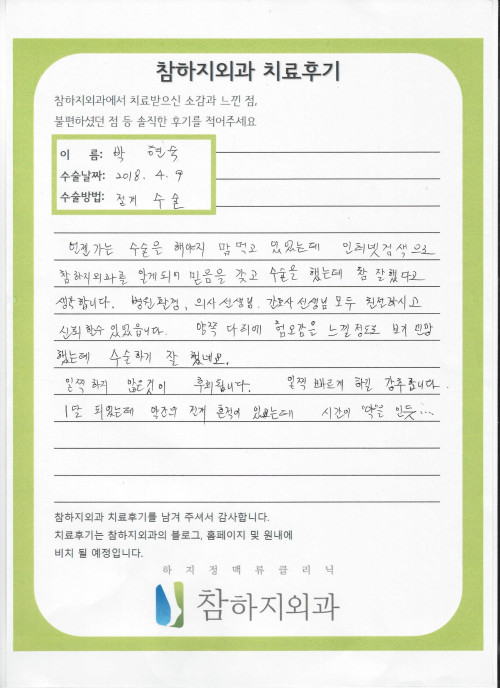 참하지외과 치료후기
참하지외과에서 치료받으신 소감과 느낀 점,
불편하셨던 점 등 솔직한 후기를 적어주세요
이 름: 박 현숙
수술날짜: 2018. 4. 9
수술방법: 절제 수술
언젠가는 수술을 해야지 맘먹고 있었는데 인터넷검색으로
참하지외과를 알게되어 믿음을 갖고 수술을 했는데 참 잘했다고
생각합니다. 병원환경, 의사선생님. 간호사선생님 모두 친절하시고
신뢰할수 있었습니다. 양쪽 다리에 혐오감을 느낄정도로 보기 민망
했는데 수술하기 잘 했네요.
일찍하지 않은것이 후회됩니다. 일찍 빠르게 하길 강추합니다.
1달 되었는데 약간의 진게 흔적이 있으는데 시간이 약을 인듯...
참하지외과 치료후기를 남겨 주셔서 감사합니다.
치료후기는 참하지외과의 블로그, 홈페이지 및 원내에
비치 될 예정입니다.
하지정맥류클리닉
참하지외과